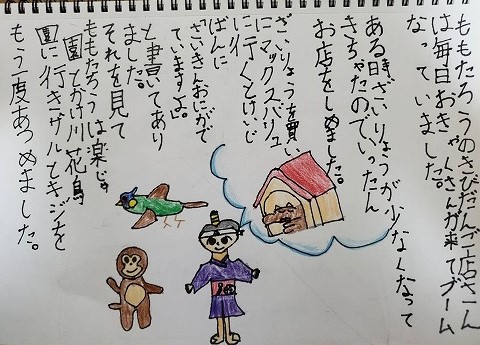 ももたろうのきびだんご店さん
は毎日おきゃくさんが来てブーム
なっていました。
ある時ざいりょうが少なくなって
きちゃたのでいったん
お店をしめました。
ざいりょうを買い
にマックスバリュ
に行くとけいじ
ばんに
「さいきんおにがで
ていますよ」。
と書いてあり
ました。
それを見て
ももたろうは楽じゅ
園とかけ川花鳥
園に行きサルとキジを
もう一度あつめました。